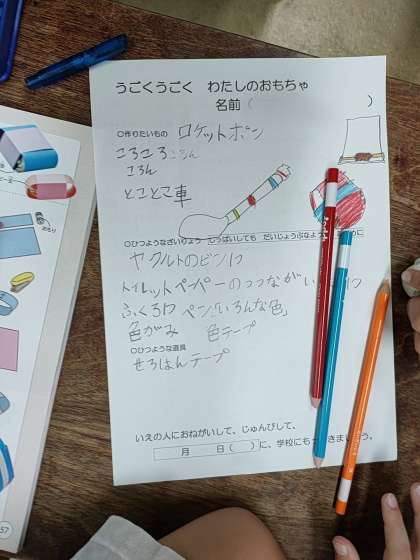 うごくうごく　わたしのおもちゃ
名前（　　　　　　　）
○作りたいもの　ロケットポン
ころころころん
ころん
とことこ車
○ひつようなざいりょう　しっぱいしても　だいじょうぶなよう に
ヤクルトのビン1つ
トイレットペーパーのつつながい 1つ
ふくろ1つ ペン「いろんな色」
色がみ　色テープ
○ひつような道具
せろはんテープ
いえの人におねがいして、じゅんびして、
月　日（　）に、学校にも きま う。
57